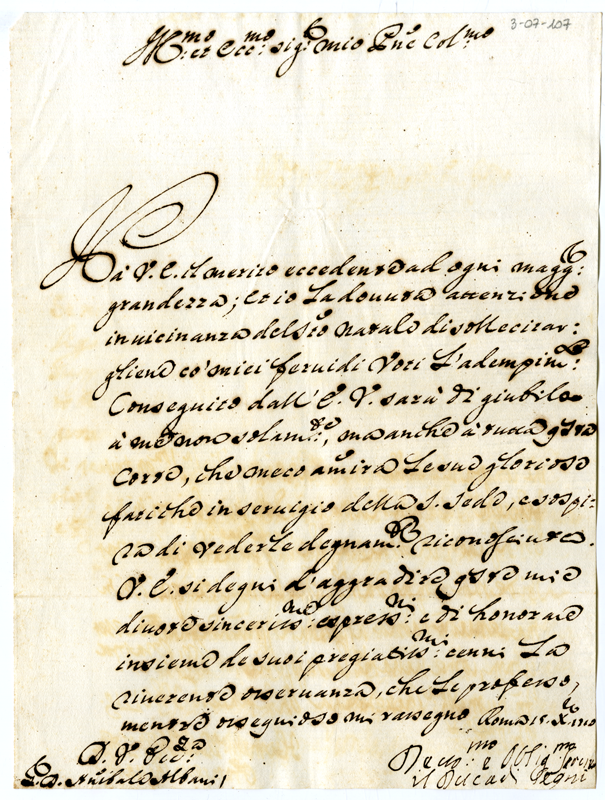 3-07-107
Ill.mo et Ecc.mo sig.r mio P.ne Col.mo
Hà V. E. il merito eccedente ad ogni magg.r
grandezza; et io La douuta attenzione
in uicinanza del S.to Natale di sollecitar:
gliene co' miei feruidi Voti L'adempim.to:
Conseguito dall' E. V. sarà di giubilo
à me non solam.te, ma anche à tutta q.sta
Corte, che meco amira Le sue gloriose
fatiche in seruigio della S. Sede, e sospi:
ra di vederle degnam.te riconosciute.
V. E. si degni d'aggradire q.ste mie
diuote sinceriss.me espress.ni: e di honorare
insieme de suoi pregiatiss.mi cenni La
riuerente osseruanza, che Le professo,
mentre ossequioso mi rassegno Roma 15 X.bre 1710
D. V. Ecc.za
S. D. Anibale Albani /
Deuo.mo e Oblig.mo Ser.re
il Duca di Segni